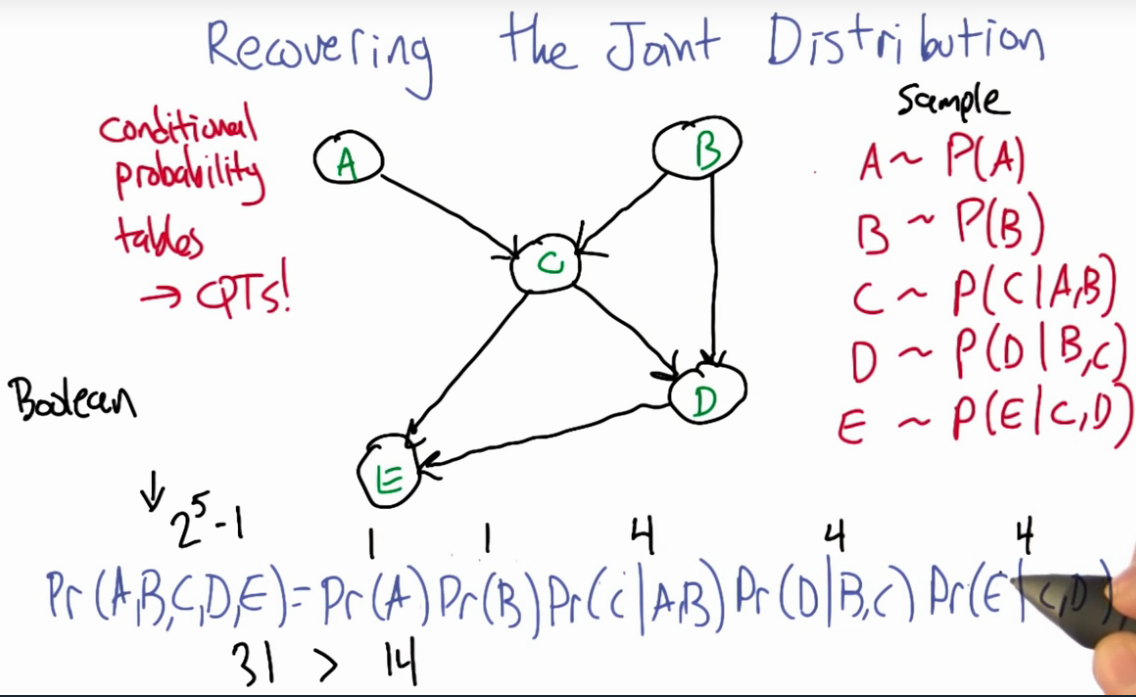 Recovering the Joint Distribution
conditional
probability
tables
→ CPTs!
Sample
A ~ P(A)
B ~ P(B)
C ~ P(C|A,B)
D ~ P(D|B,C)
E ~ P(E|C,D)
A
B
C
D
E
Boolean
↓ 2⁵-1
1 1 4 4 4
Pr(A,B,C,D,E)=Pr(A)Pr(B)Pr(C|A,B)Pr(D|B,C)Pr(E|C,D)
31 > 14